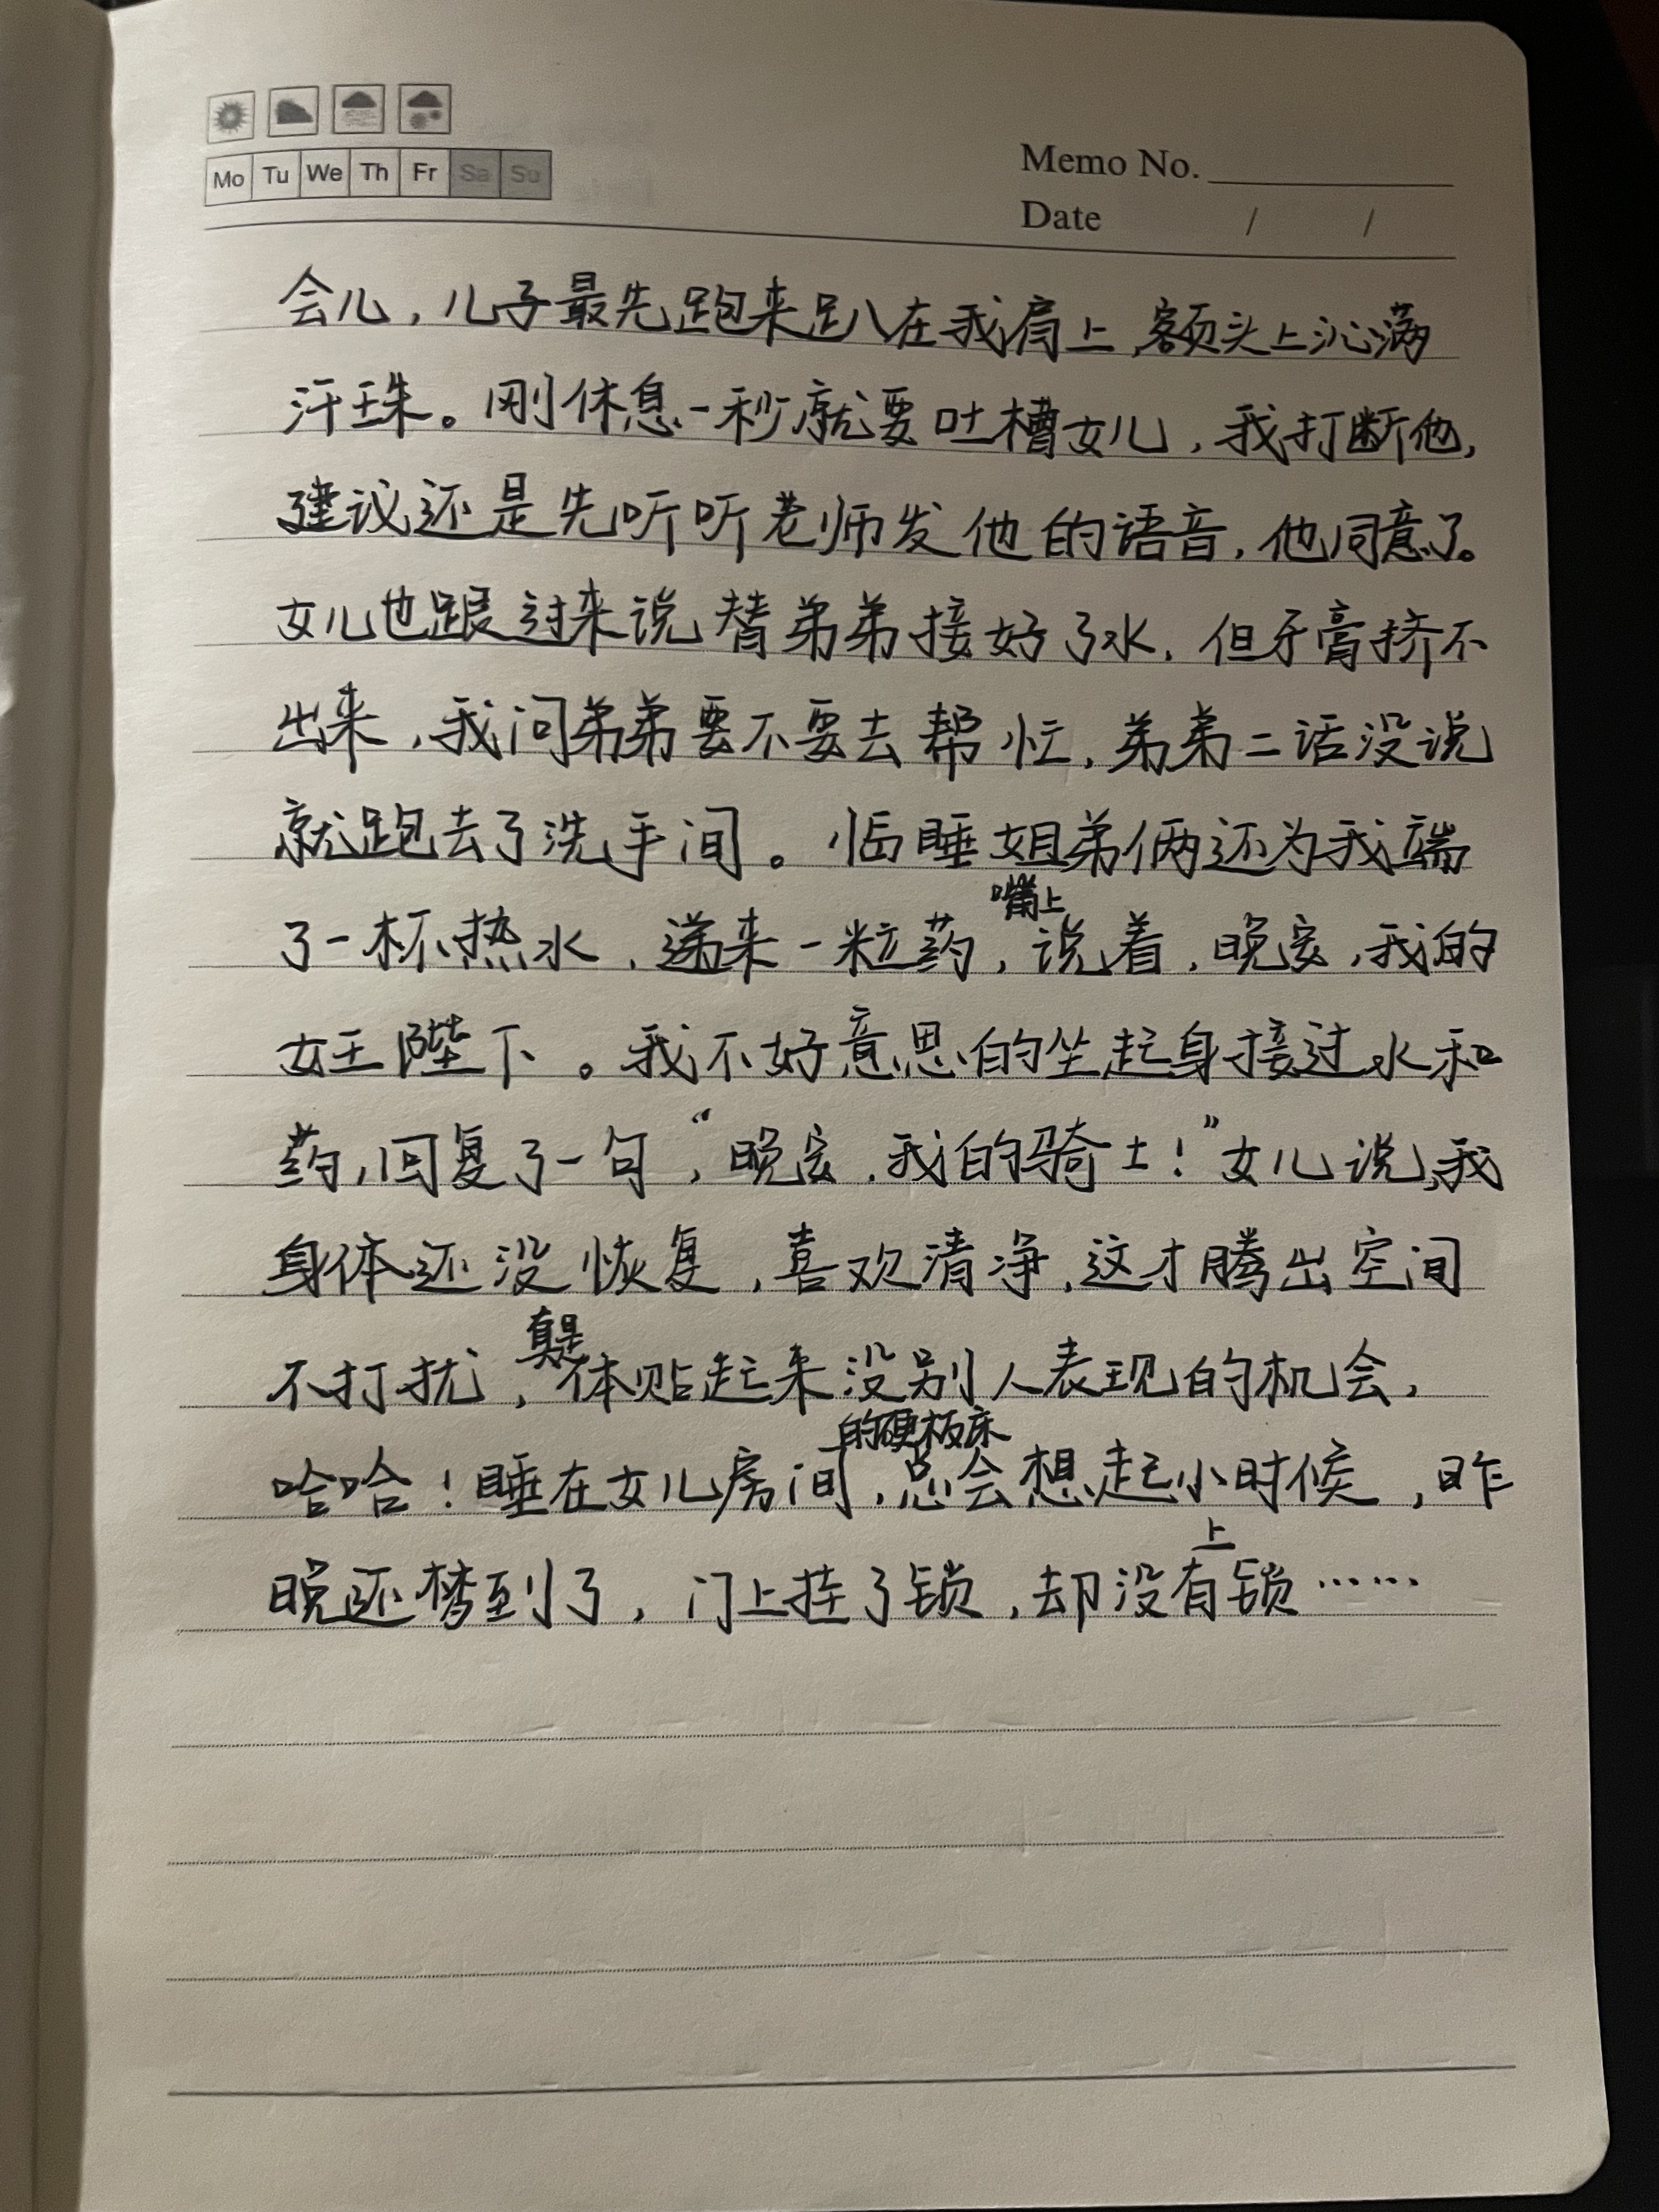 Mo Tu We Th Fr Sa Su
Memo No.
Date / /
会儿，儿子最先跑来趴在我肩上，额头上沁满
汗珠。刚休息一秒就要吐槽女儿，我打断他，
建议还是先听听老师发他的语音，他同意了。
女儿也跟过来说替弟弟接好了水，但牙膏挤不
出来，我问弟弟要不要去帮忙，弟弟二话没说
就跑去了洗手间。临睡姐弟俩还为我端
嘴上
了一杯热水，递来一粒药，说着，晚安，我的
女王陛下。我不好意思的坐起身接过水和
药，回复了一句，“晚安，我的骑士！”女儿说，我
身体还没恢复，喜欢清净，这才腾出空间
真是
不打扰，体贴起来没别人表现的机会，
的硬板床
哈哈！睡在女儿房间，总会想起小时候，昨
上
晚还梦到了，门上挂了锁，却没有锁……